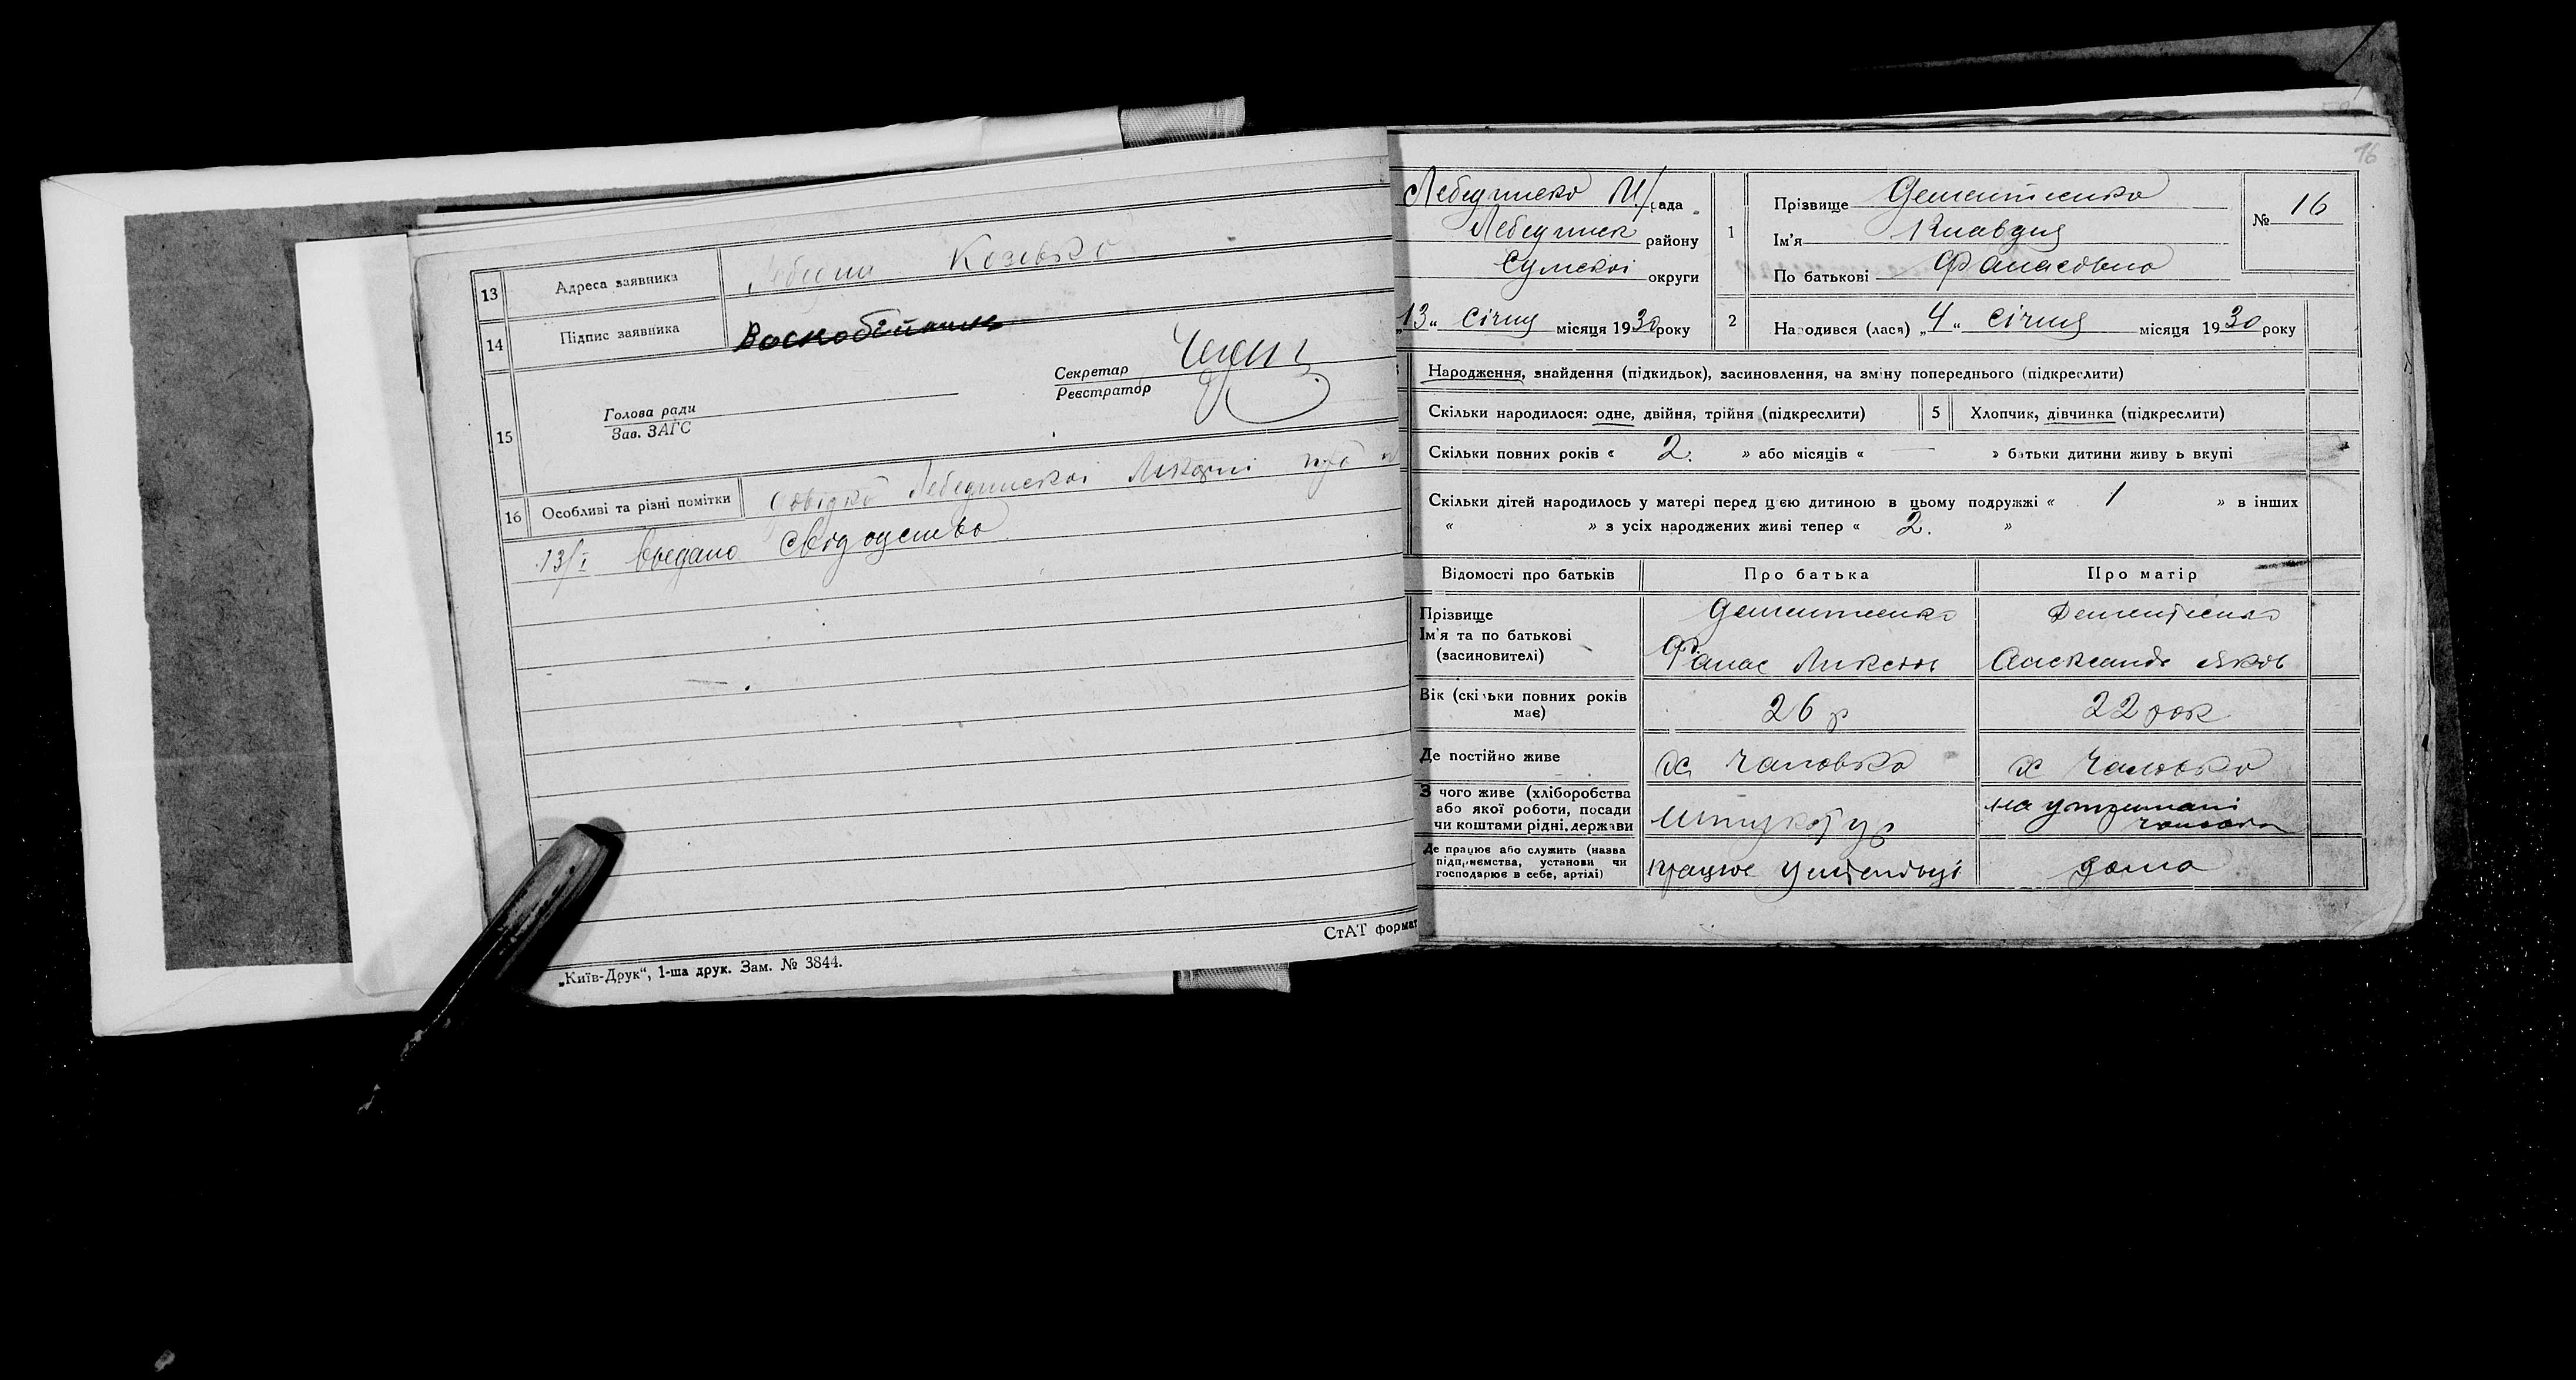 13 Адреса заявника Лебедин Козівка
14 Підпис заявника Воскобійник
15 Голова ради
Зав. ЗАГС
Секретар
Реєстратор
16 Особливі та різні помітки довідка Лебединскої Лікарні про
13/I видано свідоцтво
СтАТ формат
„Київ-Друк“, 1-ша друк. Зам. № 3844.
16
Лебединска М/рада
Лебединск району
Сумскої округи
„13“ січня місяця 1930 року
1 Прізвище Дементиенко
Ім'я Клавдия
По батькові Фанасовна
№ 16
2 Народився (лася) „4“ січня місяця 1930 року
Народження, знайдення (підкидьок), засиновлення, на зміну попереднього (підкреслити)
Скільки народилося: одне, двійня, трійня (підкреслити) 5 Хлопчик, дівчинка (підкреслити)
Скільки повних років « 2. » або місяців « — » батьки дитини живуть вкупі
Скільки дітей народилось у матері перед цією дитиною в цьому подружжі « 1 » в інших
« » з усіх народжених живі тепер « 2. »
Відомості про батьків Про батька Про матір
Прізвище Дементиенко Дементиенко
Ім'я та по батькові
(засиновителі) Фанас Александ Яков
Вік (скільки повних років
має) 26 р 22 рок
Де постійно живе х х
З чого живе (хліборобства
або якої роботи, посади
чи коштами рідні, держави штукатур на утримані
Де працює або служить (назва
підприємства, установи чи
господарює в себе, артілі) працює дома